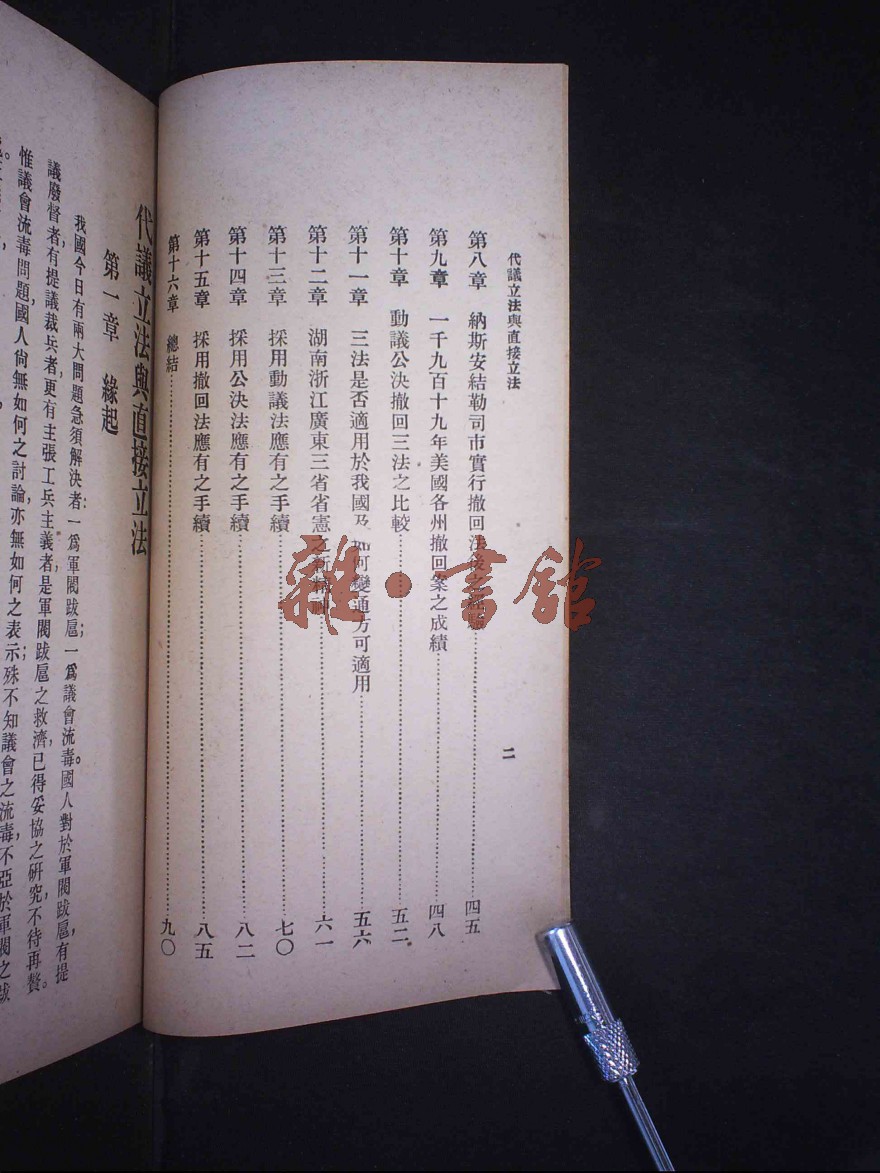 代議立法與直接立法
二
第八章 納斯安結勒司市實行撤回法後之經驗 四五
第九章 一千九百十九年美國各州撤回案之成績 四八
第十章 動議公決撤回三法之比較 五二
第十一章 三法是否適用於我國及如何變通方可適用 五六
第十二章 湖南浙江廣東三省省憲之新精神 六一
第十三章 採用動議法應有之手續 七〇
第十四章 採用公決法應有之手續 八二
第十五章 採用撤回法應有之手續 八五
第十六章 總結 九〇
代議立法與直接立法
第一章 緣起
我國今日有兩大問題急須解決者:一爲軍閥跋扈;一爲議會流毒。國人對於軍閥跋扈,有提
議廢督者,有提議裁兵者,更有主張工兵主義者,是軍閥跋扈之救濟,已得妥協之研究,不待再贅。
惟議會流毒問題,國人尙無如何之討論,亦無如何之表示;殊不知議會之流毒,不亞於軍閥之跋
雜·書館